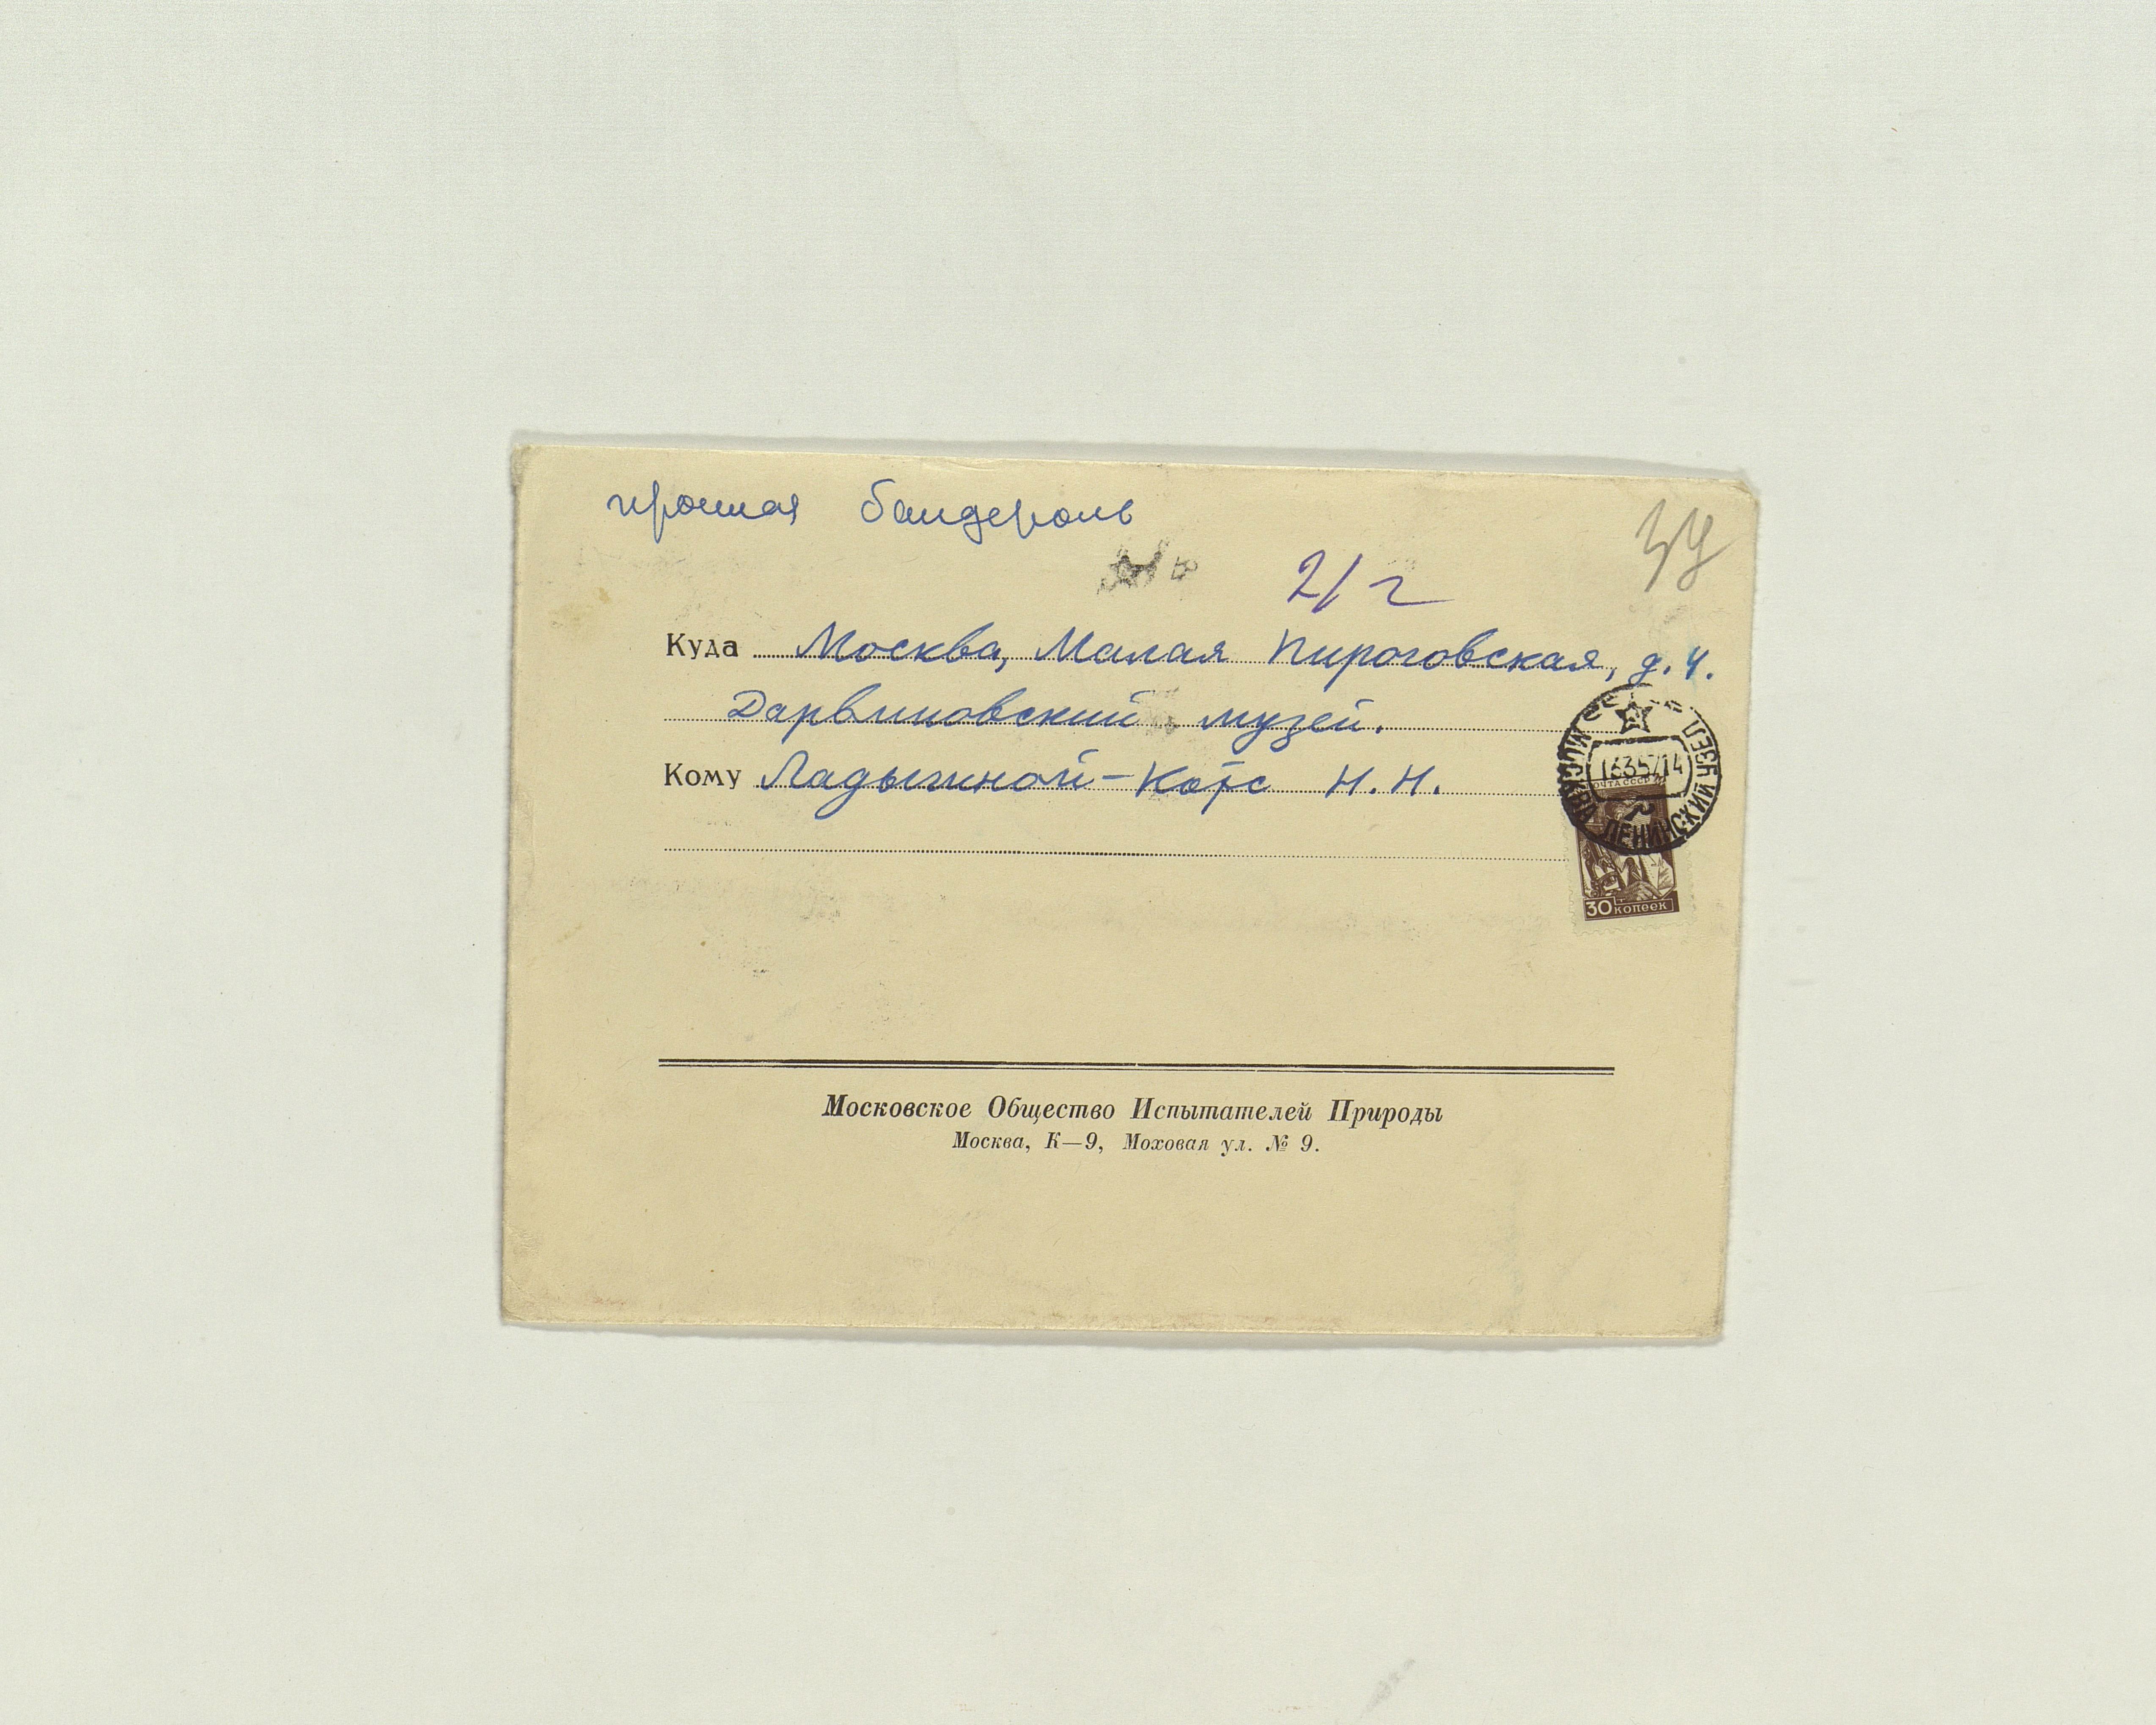 простая бандероль
39
2/г
Куда Москва, Малая Пироговская, д. 4.
Дарвиновский музей.
Кому Ладыгиной-Котс Н.Н.
МОСКВА
ЛЕНИНСКИЙ
ПОЧТА СССР
30 копеек
Московское Общество Испытателей Природы
Москва, К—9, Моховая ул. № 9.